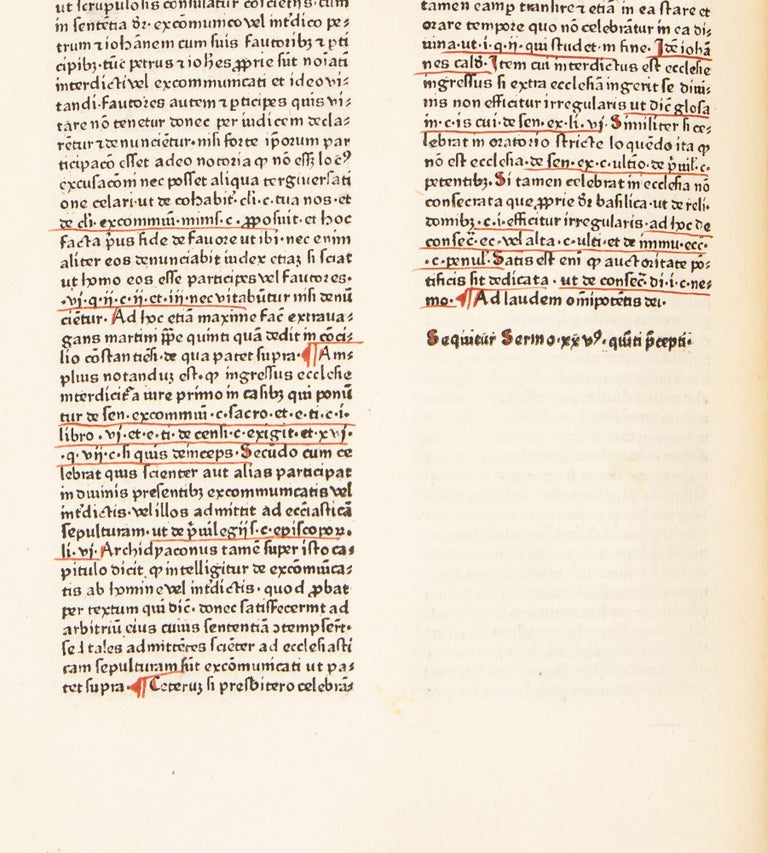 ut scrupulosis consulatur cōsciētijs. cum
in sentētia dr̄. excōmunico vel int̄dico pe⸗
trum ⁊ iohānem cum suis fautoribꝫ ⁊ ꝑti
cipibꝫ. tūc petrus ⁊ ioh̄es ꝓprie sūt noīati
interdicti vel excommunicati et ideo vi⸗
tandi. fautores autem ⁊ ꝑticipes quis vi⸗
tare nō tenetur donec per iudicem decla⸗
rētur ⁊ denunciētur. nisi forte ip̄orum par
ticipacō esset adeo notoria ꝙ nō ess̄ locꝰ
excusacōni nec posset aliqua tergiuersati
one celari. ut de cohabit. cli. c. tua nos. et
de cli. excommūi. minis. c. ꝓposuit. et hoc
facta pus fide de fauore ut ibi. nec enim
aliter eos denunciabit iudex etiaꝫ si sciat
ut homo eos esse participes vel fautores.
.vi. q. ii. c. ii. et. iii. nec vitabūtur nisi denū
ciētur. Ad hoc etiā maxime fac̄ extraua⸗
gans martini ꝑpe quinti quā dedit in cōci⸗
lio cōstantiēsi. de qua patet supra. ¶ Am⸗
plius notanduꝫ est. ꝙ ingressus ecclesie
interdicit̄a iure primo in casibꝫ qui ponū
tur de sen. excommūi. c. sacro. et. e. ti. c. i.
libro. vi. et e. ti. de censi. c. exigit. et xvi.
.q. vij. c. si quis deinceps. Secūdo cum ce
lebrat quis scienter aut alias participat
in diuinis presentibꝫ excommunicatis vel
int̄dictis. vel illos admittit ad eccīasticā
sepulturam. ut de p̄uilegijs. c. episcopoꝝ.
li. vi. Archidyaconus tamē super isto ca⸗
pitulo dicit ꝙ intelligitur de excōmūica⸗
tis ab homine vel int̄dictis. quod ꝓbat
per textum qui dic̄. donec satisfecerint ad
arbitriū eius cuius sententiā ꝯtempsert̄.
sed tales admittētes sciēter ad ecclesiasti
cam sepulturam sūt excōmunicati ut pa⸗
tet supra. ¶ Ceteruꝫ si presbitero celebrā⸗
tamen eamꝑ tranſire ⁊ etiā in ea stare et
orare tempore quo nō celebrātur in ea di⸗
uina. ut. i. q. ii. qui studet. in fine. Idē iohā
nes calð. Item cui interdictus est ecclesie
ingressus si extra ecclesiā ingerit se diui⸗
nis non efficitur irregularis ut dic̄ glosa
in. c. is cui. de sen. ex. li. vi. Similiter si ce⸗
lebrat in oratorio stricte loquēdo ita ꝙ
nō est ecclesia. de sen. ex. c. ultīo. de p̄uil. c.
petentibꝫ. Si tamen celebrat in ecclesia nō
consecrata que ꝓprie dr̄ basilica. ut de reli.
domibꝫ. c. i. efficitur irregularis. ad hoc de
consec̄. ec. vel alta. c. ulti. et de immu. ecc.
. c. penul. Satis est enī ꝙ auctoritate pō⸗
tificis sit dedicata. ut de consec̄. di. i. c. ne⸗
mo. ¶ Ad laudem om̄ipotētis dei.
Sequitur Sermo. xxvꝰ. quīti p̄cepti.